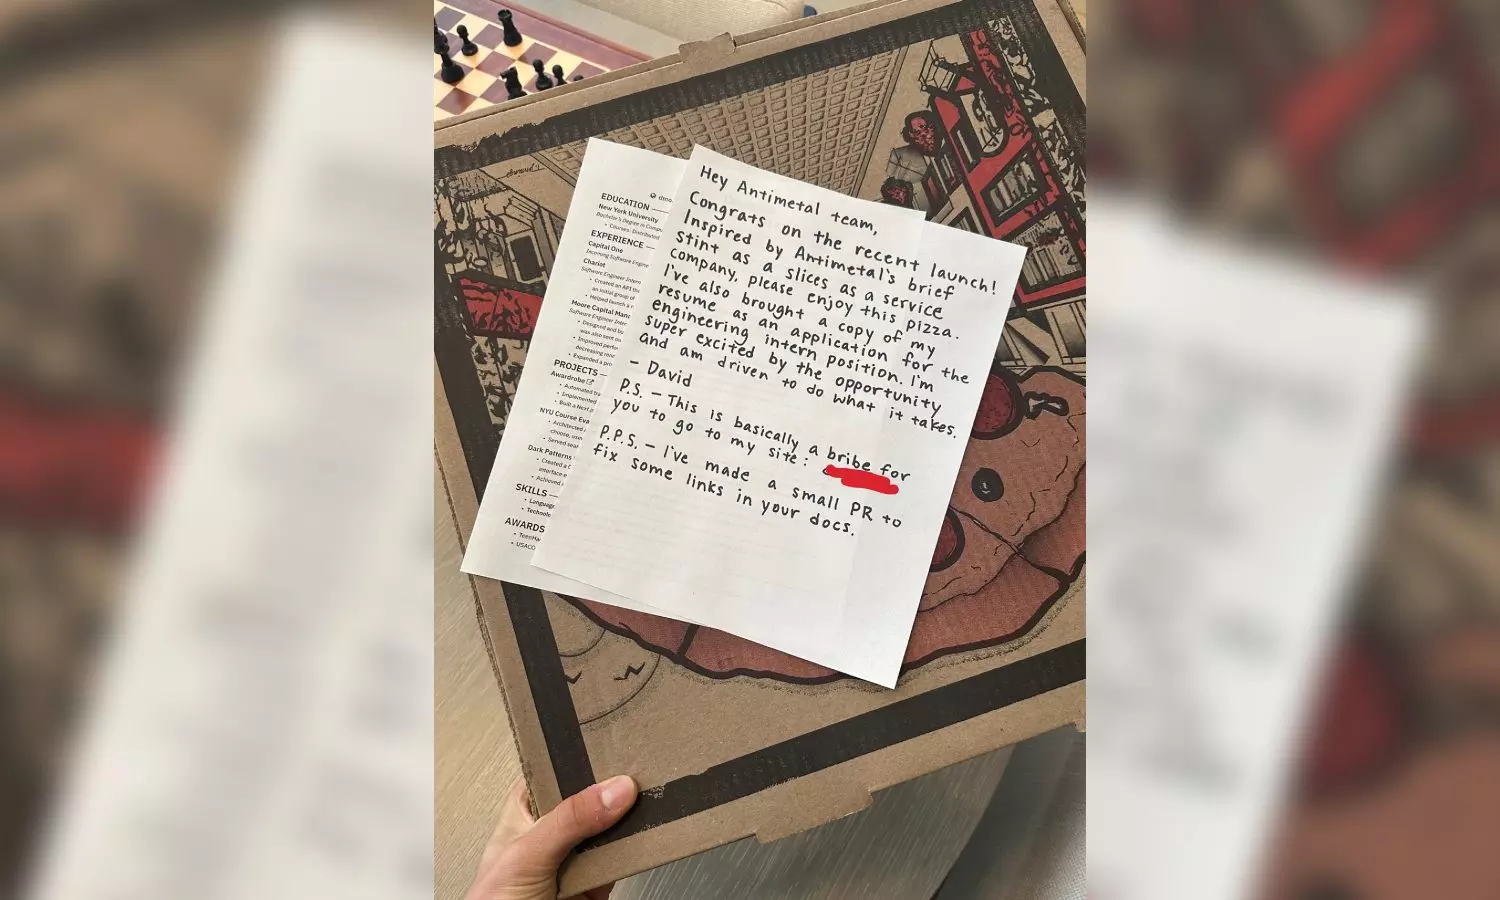 Hey Antimetal team,
Congrats on the recent launch!
Inspired by Antimetal's brief
stint as a slices as a service
company, please enjoy this pizza.
I've also brought a copy of my
resume as an application for the
engineering intern position. I'm
super excited by the opportunity
and am driven to do what it takes.
- David
P.S. - This is basically a bribe for
you to go to my site:
P.P.S. - I've made a small PR to
fix some links in your docs.
EDUCATION
New York University
Bachelor's Degree in
Courses: Distributed
EXPERIENCE
Capital One
Incoming Software
Chariot
Software Engineer Intern
Created an API
an initial group of
Helped launch a
Moore Capital
Software Engineer
Designed and
was also
Improved
decreasing
Expanded a
PROJECTS
Awardrobe
Automated
Implemented
Built a
NYU Course
Architected
choose,
Served
Dark Patterns
Created a
interface
Achieved
SKILLS
AWARDS
USACO